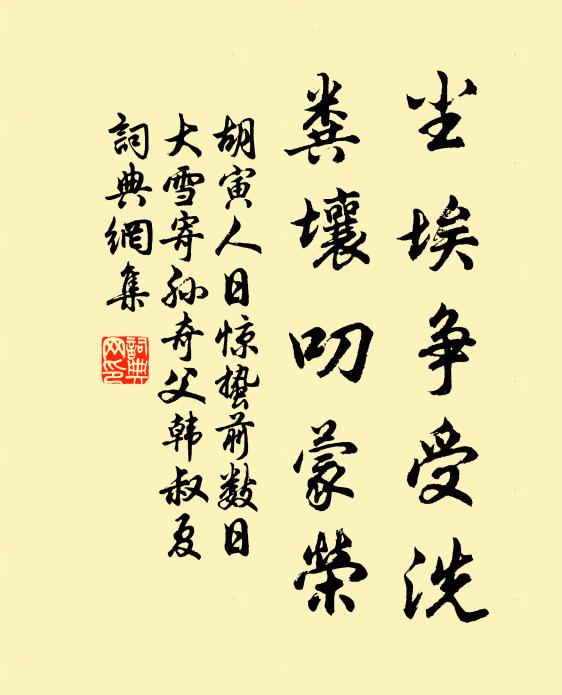 尘埃争受洗
粪壤叨蒙榮
胡寅人日惊蛰前数日
大雪寄孙奇父韩叔夏
詞典網集
詞典網印